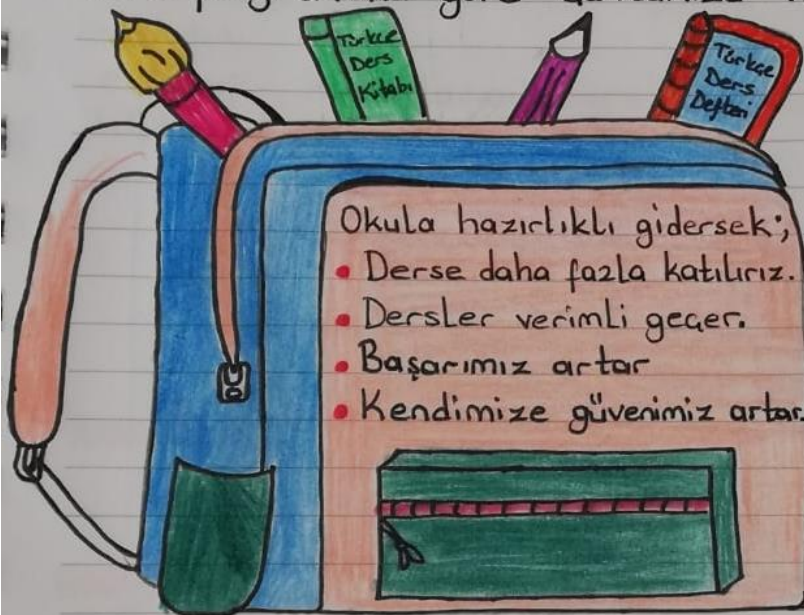 göre
Türkçe
Ders
Kitabı
Türkçe
Ders
Defteri
Okula hazırlıklı gidersek;
• Derse daha fazla katılırız.
• Dersler verimli geçer.
• Başarımız artar
• Kendimize güvenimiz artar.